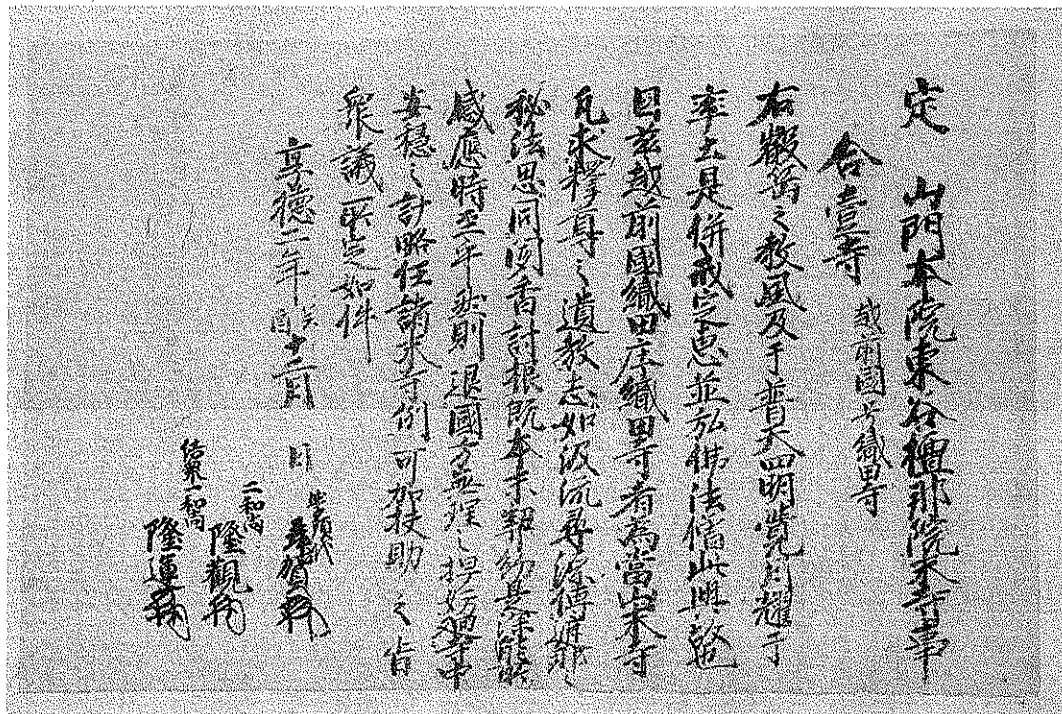 定　山門本院東谷檀那院末寺事
合壹寺　越前國号織田寺
右叡岳之教風及于普天四明覚月耀于
率土是併戒定恵並弘佛法
因茲越前國織田庄織田寺者為當山末寺
凡求釋尊之遺教志如汲流尋源傳
秘法思同聞香討根既本末契約是深能
感應時至乎然則退國方無理之押妨廻寺中
安穏之計略任諸末寺例可加扶助之旨
衆議所定如件
享徳二年癸酉十二月　日
学頭代
賀
二和尚
隆觀
一和尚
隆運